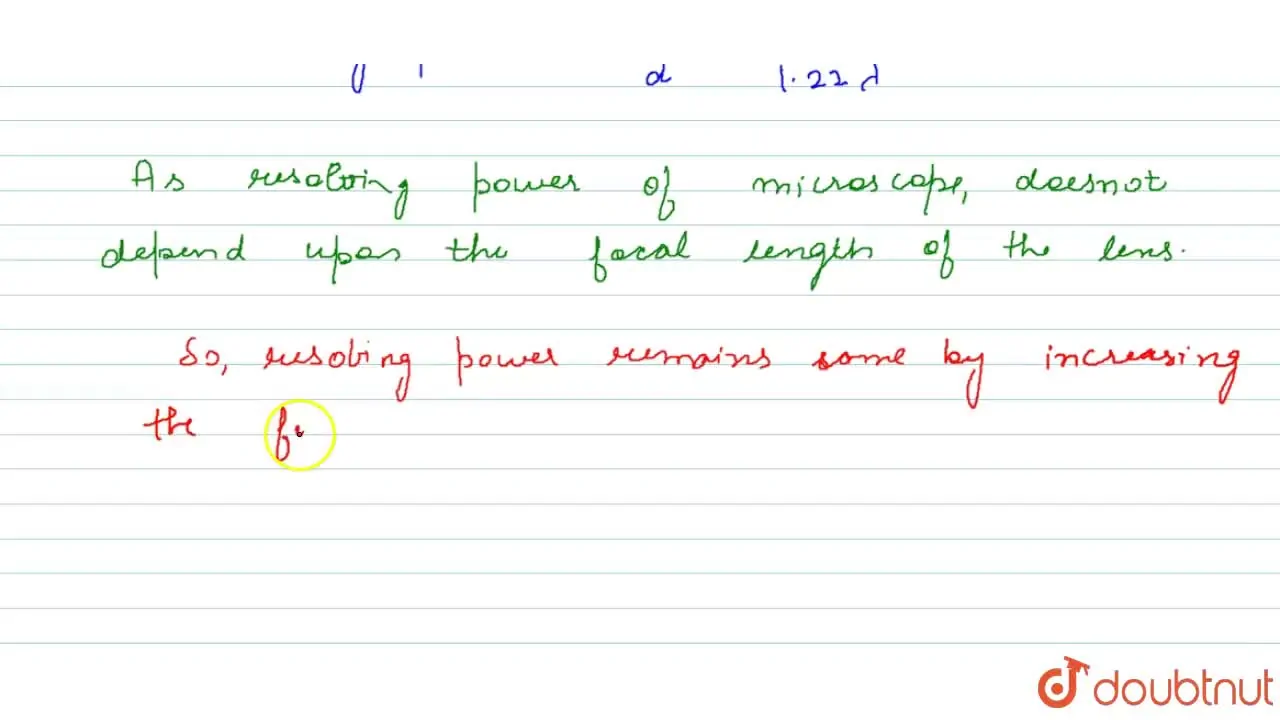 d 1.22 λ
As resolving power of microscope, doesnot
depend upon the focal length of the lens.
So, resolving power remains same by increasing
the f
doubtnut